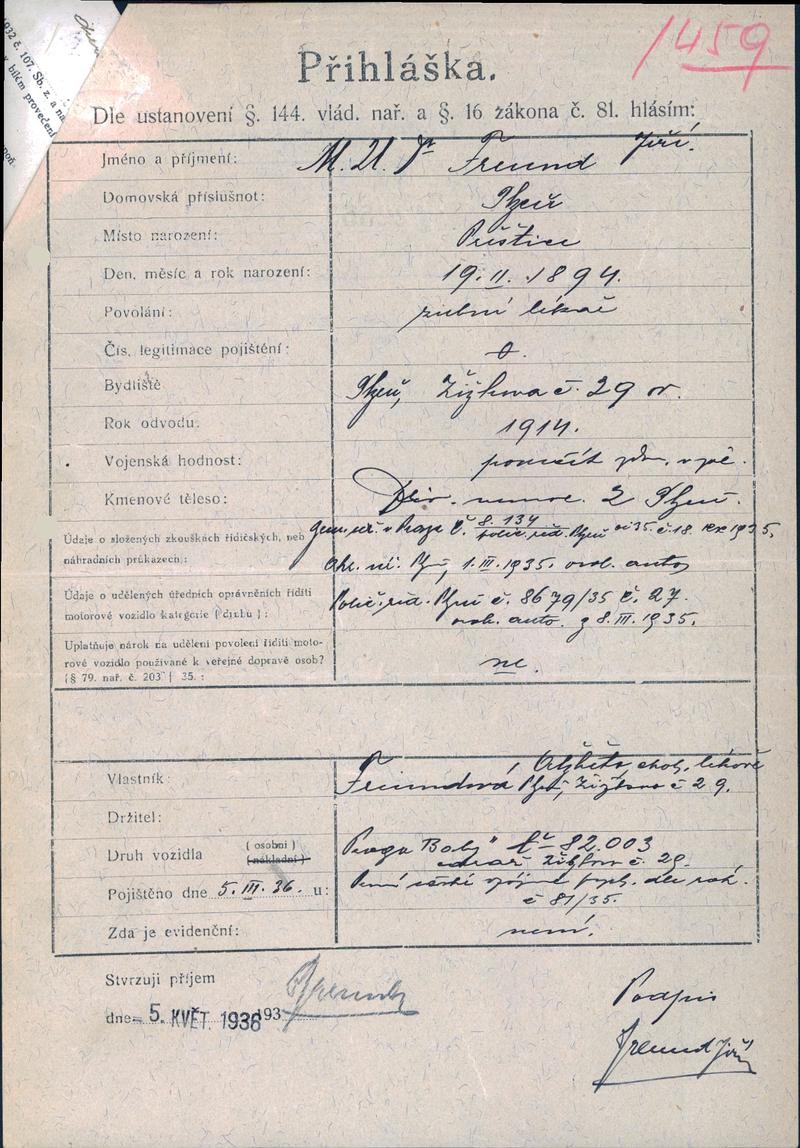 1932 č. 107. Sb. z. a na
v bílém provedení
1459
Přihláška.
Dle ustanovení §. 144. vlád. nař. a §. 16 zákona č. 81. hlásím:
Jméno a příjmení: M.U.Dr Freund Jiří.
Domovská příslušnot: Plzeň
Místo narození: Přeštice
Den, měsíc a rok narození: 19. II. 1894.
Povolání: zubní lékař
Čís. legitimace pojištění: 0.
Bydliště Plzeň, Žižkova č. 29
Rok odvodu: 1914.
Vojenská hodnost:
Kmenové těleso: Div. nemoc. 2 Plzeň.
Údaje o složených zkouškách řidičských, neb
náhradních průkazech: 1. III. 1935. osob. auto
Údaje o udělených úředních oprávněních říditi Polic. řed. Plzeň č. 8679/35 č. 27.
motorové vozidlo kategorie (druhu): osob. auto. z 8. III. 1935.
Uplatňuje nárok na udělení povolení říditi moto-
rové vozidlo používané k veřejné dopravě osob? ne.
(§ 79. nař. č. 203 | 35. :
Vlastník: Freundová Alžběta, choť lékaře
Plzeň, Žižkova č 29.
Držitel:
Druh vozidla (osobní) (nákladní) Praga Baby" č 82.003
Žižkova č. 29.
Pojištěno dne 5. III. 36. u: První česká
č 81/35.
Zda je evidenční: není.
Stvrzuji příjem
dne 5. KVĚT. 1936 193
Podpis
Freund Jiří